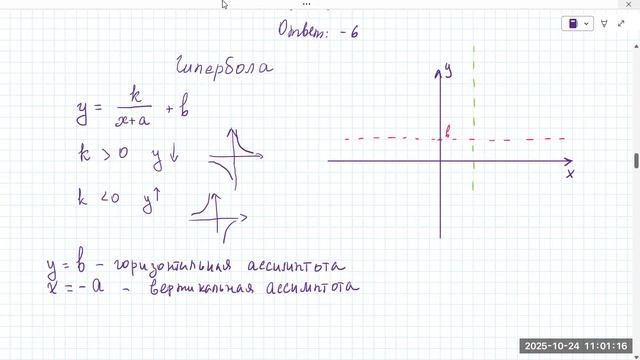 Ответ: -6
Гипербола
y = k/(x+a) + b
k > 0 y↓
k < 0 y↑
y = b - горизонтильная ассимптота
x = -a - вертикальная ассимптота
y
b
x
2025-10-24 11:01:16